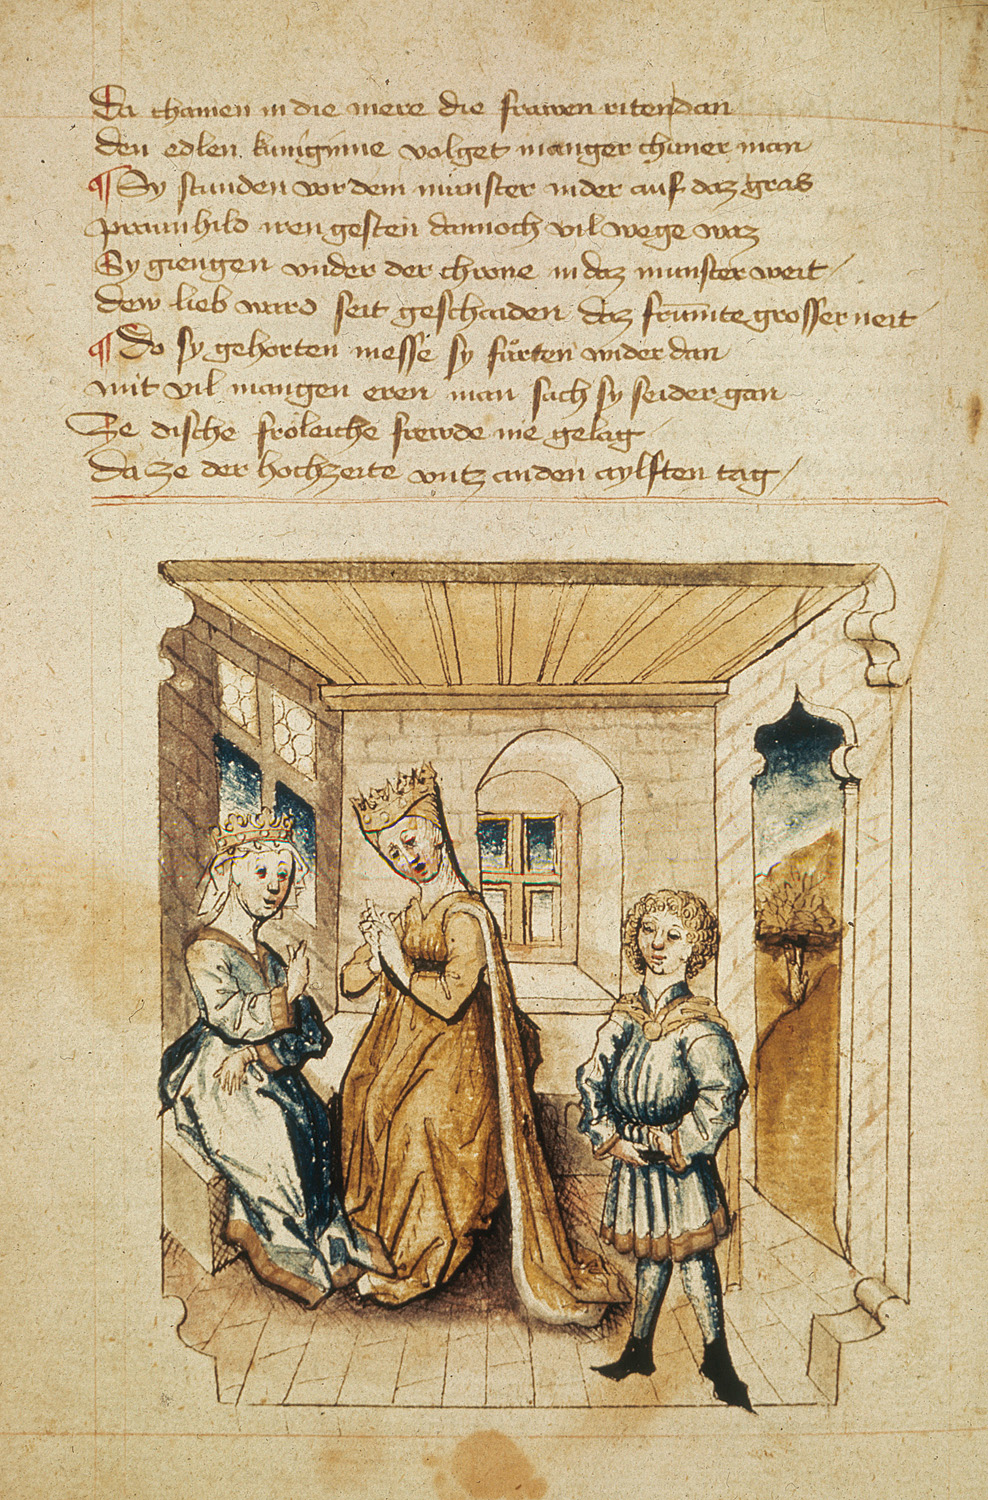 Da chamen in die mere die frawen riten dan
den edlen kunigūnne volget manger chuner man
¶ Sy stunden vor dem munster nider auf daz gras
prawnhild iren gesten dannoch vil wege waz
Sy giengen vnder der chrone in daz munster weit
dew lieb ward seit geschaiden daz frūmte grosser neit
¶ Do sy gehorten messe sy fůrten wider dan
mit vil mangen eren man sach sy seider gan
Ze dische froleiche frewde nie gelag
Da ze der hochzeite vntz an den aylften tag